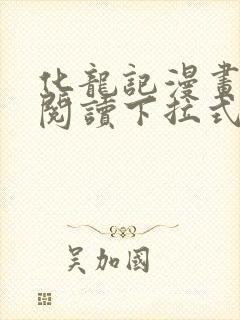 化龍記漫畫
閱讀下拉式
吴加國